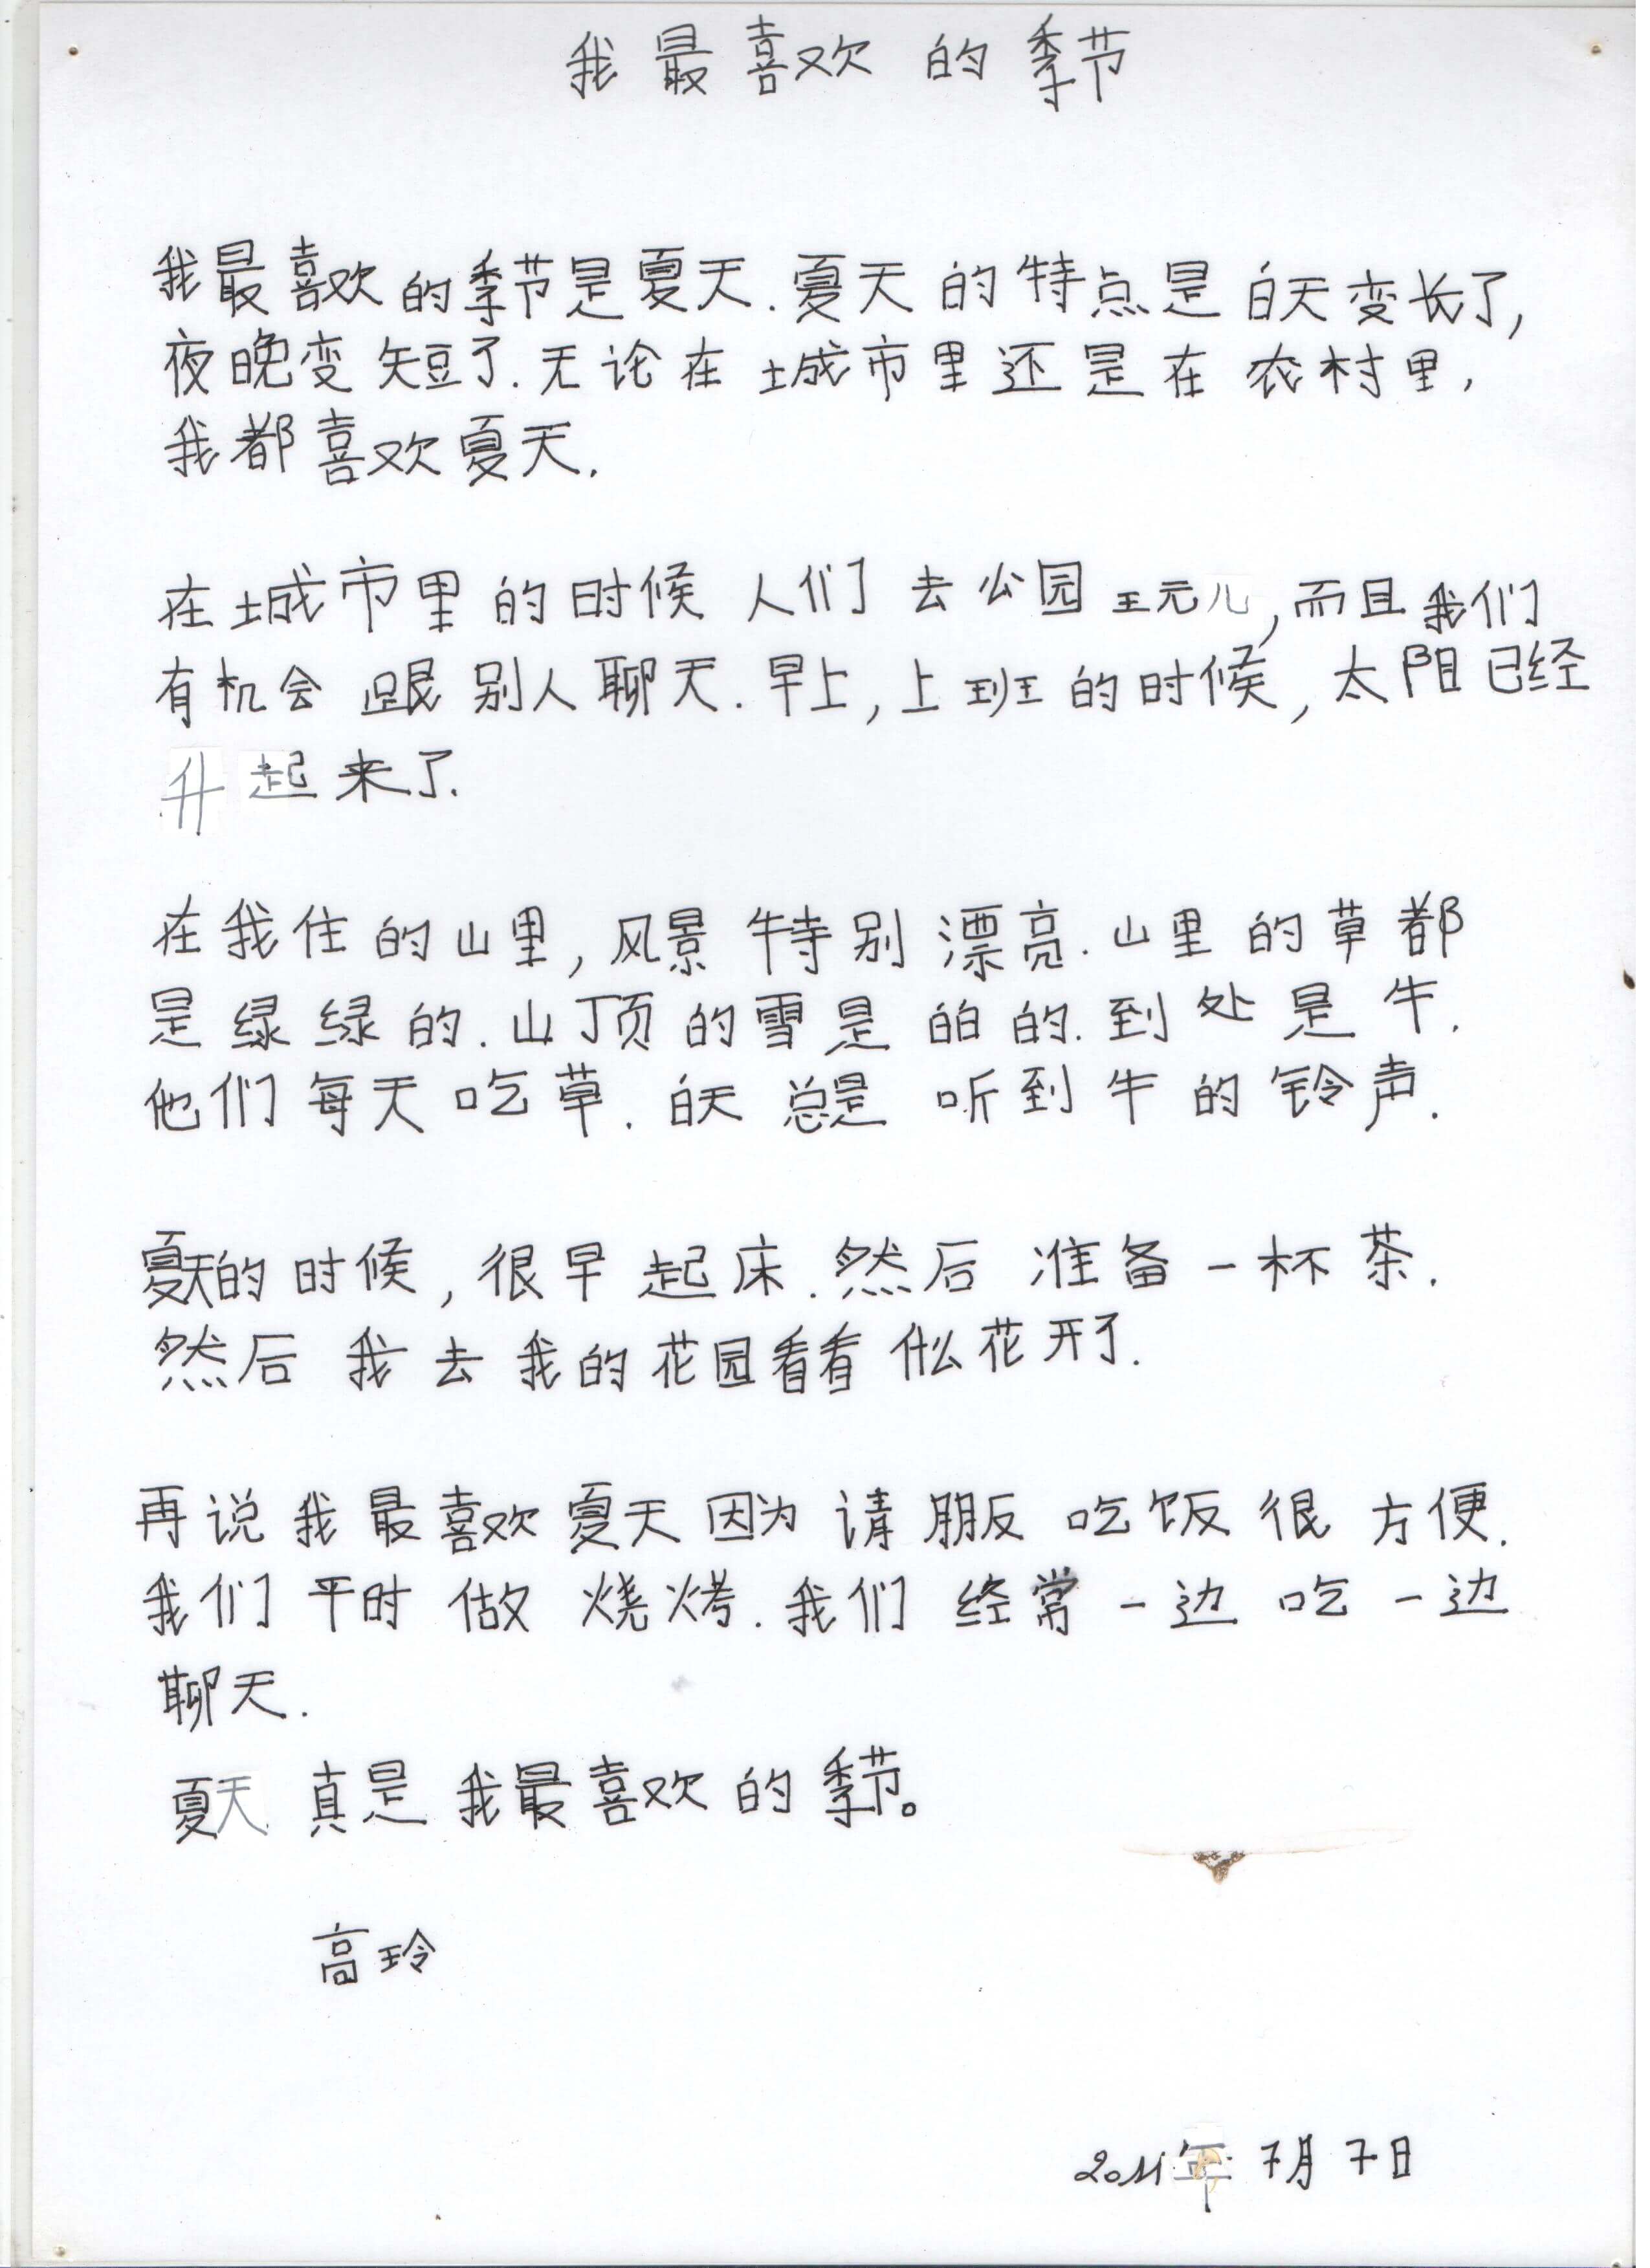 我最喜欢的季节
我最喜欢的季节是夏天.夏天的特点是白天变长了,
夜晚变短了.无论在城市里还是在农村里,
我都喜欢夏天.
在城市里的时候人们去公园玩儿,而且我们
有机会跟别人聊天.早上,上班的时候,太阳已经
升起来了.
在我住的山里,风景特别漂亮.山里的草都
是绿绿的.山顶的雪是白白的.到处是牛.
他们每天吃草.白天总是听到牛的铃声.
夏天的时候,很早起床.然后准备一杯茶.
然后我去我的花园看看什么花开了.
再说我最喜欢夏天因为请朋友吃饭很方便.
我们平时做烧烤.我们经常一边吃一边
聊天.
夏天真是我最喜欢的季节。
高玲
2011年7月7日